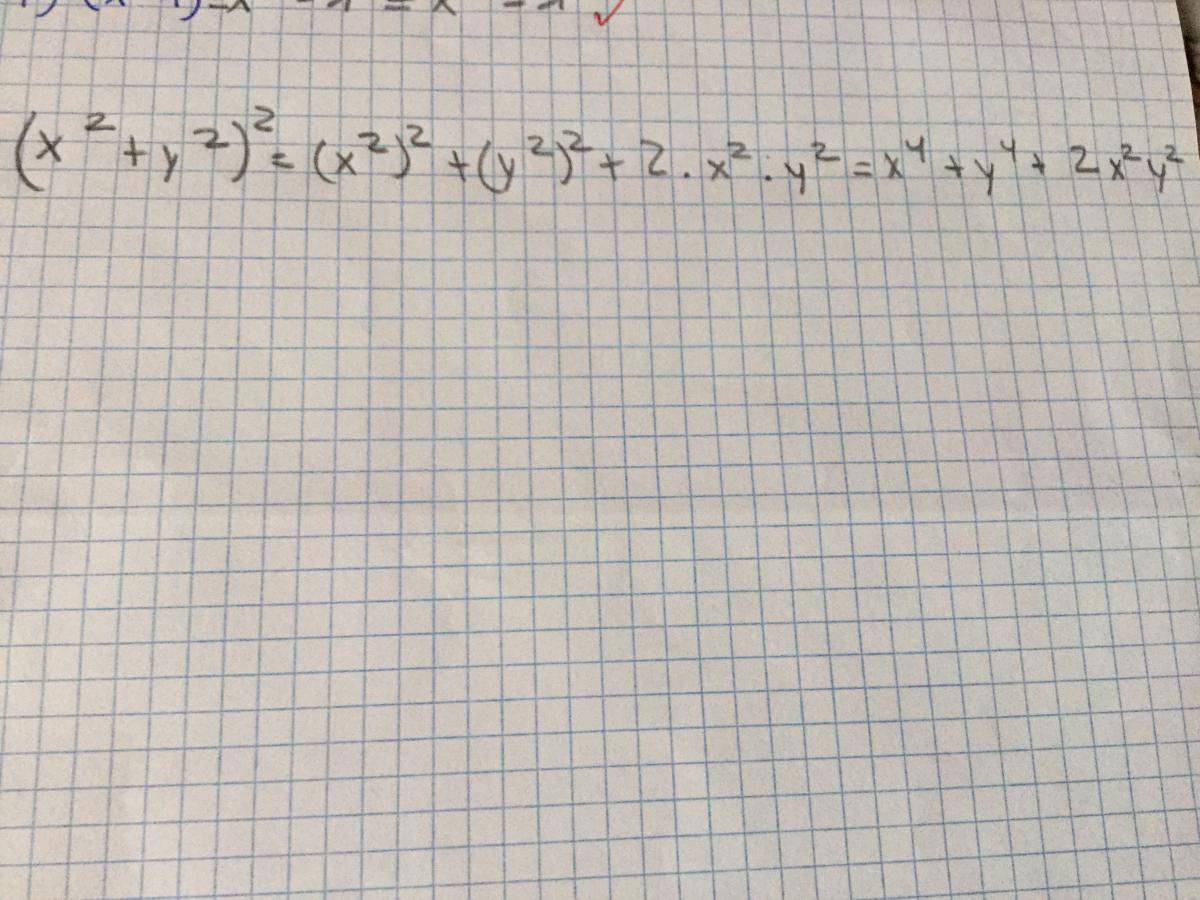 (x² + y²)² = (x²)² + (y²)² + 2 . x² : y² = x⁴ + y⁴ + 2x²y²